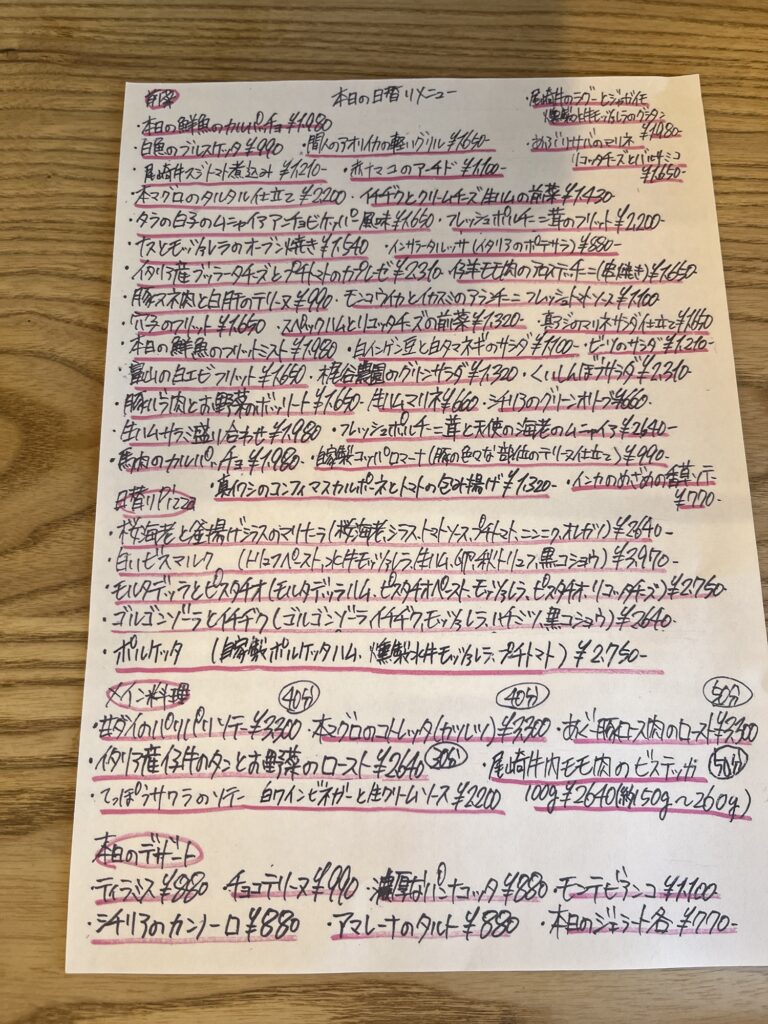 前菜 本日の日替りメニュー
・尾崎牛のラグーとジャガイモ
燻製水牛モッツァレラのグラタン
¥1,980
・本日の鮮魚のカルパッチョ ¥1,980
・白魚のブルスケッタ ¥990 ・間人のアオリイカの軽いグリル ¥1,650-
・あぶりサバのマリネ
リコッタチーズとバルサミコ
¥1,650
・尾崎牛スジトマト煮込み ¥1,210- ・赤ナマコのアーチド ¥1,100-
・本マグロのタルタル仕立て ¥2,200 ・イチヂクとクリームチーズ生ハムの前菜 ¥1,430-
・タラの白子のムニャイア アンチョビケッパー風味 ¥1,650 ・フレッシュポルチーニ茸のフリット ¥2,200-
・ナスとモッツァレラのオーブン焼き ¥1,540 ・インサラータルッサ(イタリアのポテサラ) ¥880-
・イタリア産ブッラータチーズとプチトマトのカプレーゼ ¥2,310 ・仔羊モモ肉のアロスティチーニ(串焼き) ¥1,650
・豚スネ肉と白月のテリーヌ ¥990 ・モンゴウイカとイカスミのアランチーニ フレッシュトマトソース ¥1,100
・穴子のフリット ¥1,650 ・スペックハムとリコッタチーズの前菜 ¥1,320- ・真アジのマリネサラダ仕立て ¥1,650
・本日の鮮魚のフリットミスト ¥1,980 ・白インゲン豆と白タマネギのサラダ ¥1,100- ・ビーツのサラダ ¥1,210-
・富山の白エビフリット ¥1,650 ・梶谷農園のグリーンサラダ ¥1,320 ・くいしんぼうサラダ ¥2,310
・豚バラ肉とお野菜のボッリート ¥1,650 ・生ハムマリネ ¥660 ・シチリアのグリーンオリーブ ¥660-
・生ハムサラミ盛り合わせ ¥1,980 ・フレッシュポルチーニ茸と天使の海老のムニャイア ¥2640-
・馬肉のカルパッチョ ¥1,980 ・自家製コッパロマーナ(豚の色々な部位のテリーヌ仕立て) ¥990
・真イワシのコンフィマスカルポーネとトマトの包み揚げ ¥1,320- ・インカのめざめの香草ソテー
¥770-
日替りPizza
・桜海老と釜揚げシラスのマリナーラ(桜海老、シラス、トマトソース、プチトマト、ニンニク、オレガノ) ¥2640-
・白いビスマルク (トリュフペースト、水牛モッツァレラ、生ハム、卵、秋トリュフ、黒コショウ) ¥3,970-
・モルタデッラとピスタチオ(モルタデッラハム、ピスタチオペースト、モッツァレラ、ピスタチオ、リコッタチーズ) ¥2,750
・ゴルゴンゾーラとイチヂク(ゴルゴンゾーラ、イチヂク、モッツァレラ、ハチミツ、黒コショウ) ¥2640-
・ポルケッタ (自家製ポルケッタハム、燻製水牛モッツァレラ、プチトマト) ¥2,750-
メイン料理 40分 40分 50分
・甘ダイのパリパリソテー ¥3,300 ・本マグロのコトレッタ(カツレツ) ¥3,300 ・あぐー豚ロース肉のロースト ¥3,300
・イタリア産仔牛のタンとお野菜のロースト ¥2640 30分 ・尾崎牛内モモ肉のビステッカ 50分
・てっぽうサワラのソテー 白ワインビネガーと生クリームソース ¥2200 100g ¥2640(約150g〜260g)
本日のデザート
・ティラミス ¥880 ・チョコテリーヌ ¥990 ・濃厚なパンナコッタ ¥880 ・モンテビアンコ ¥1,100
・シチリアのカンノーロ ¥880 ・アマレーナのタルト ¥880 ・本日のジェラート各 ¥770-